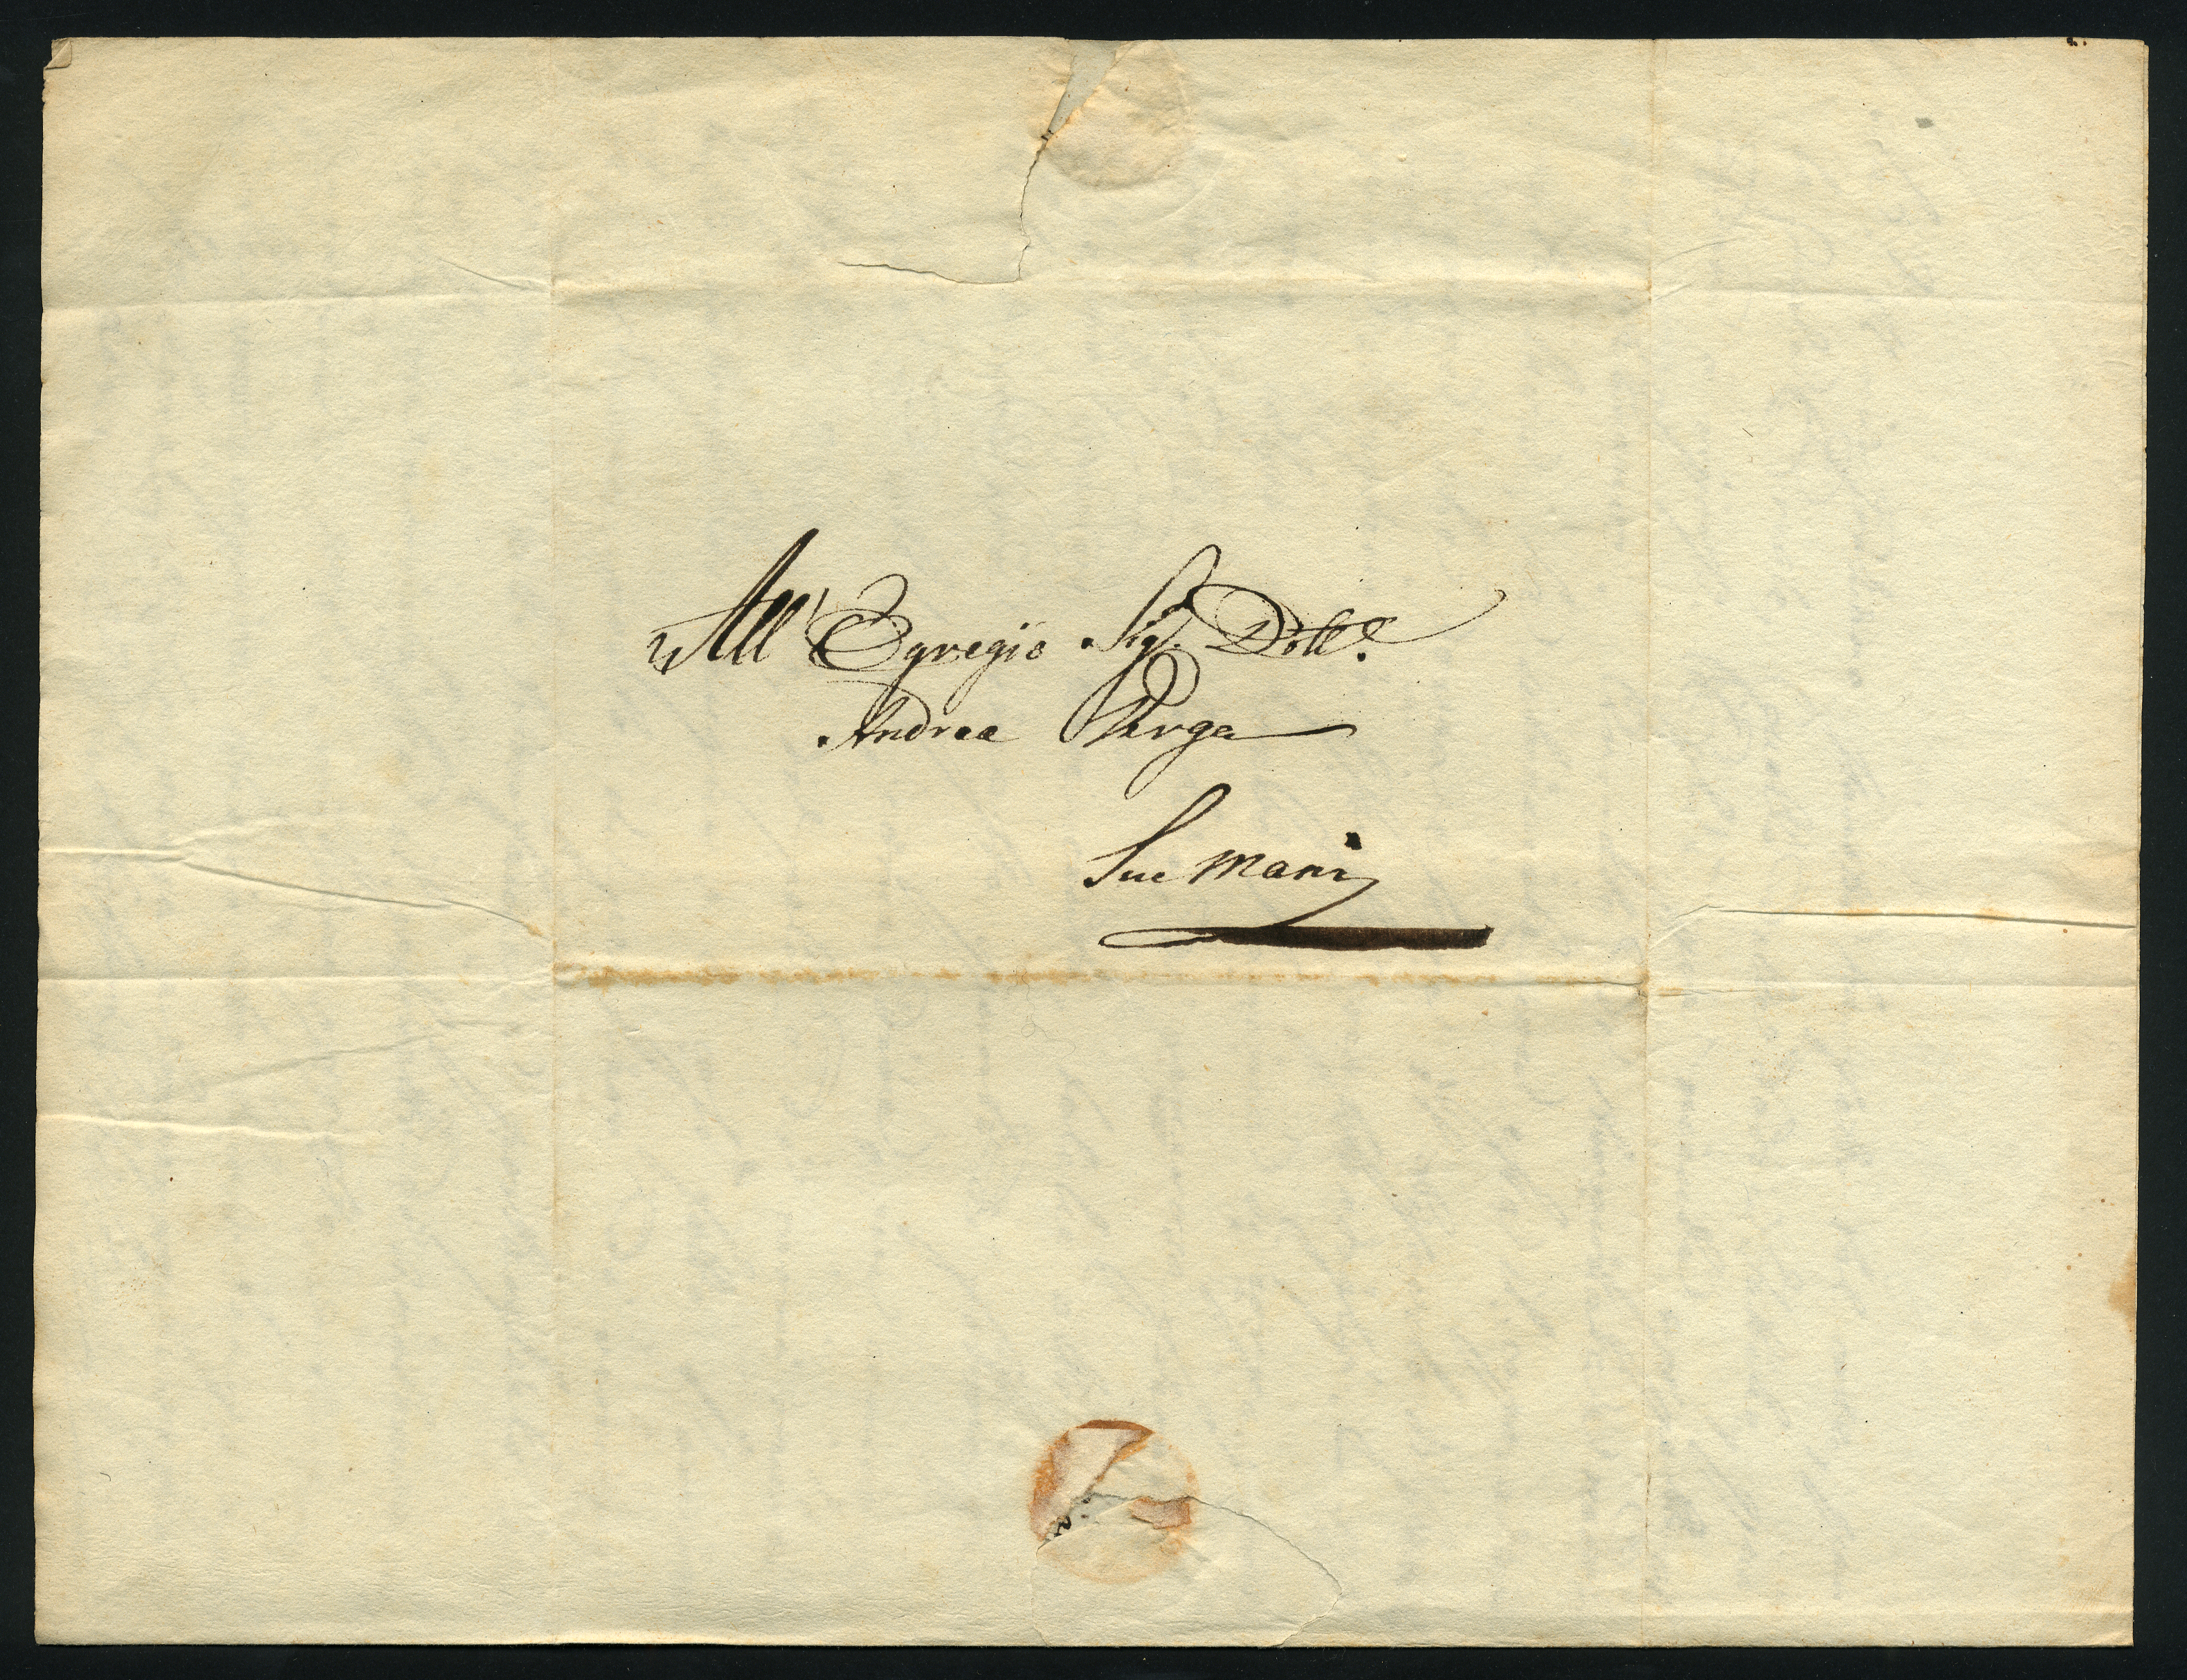 All' Egregio Sig.r Dott.e
Andrea Verga
Sue Mani